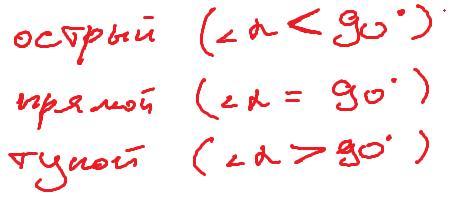 острый (∠α < 90°)
прямой (∠α = 90°)
тупой (∠α > 90°)